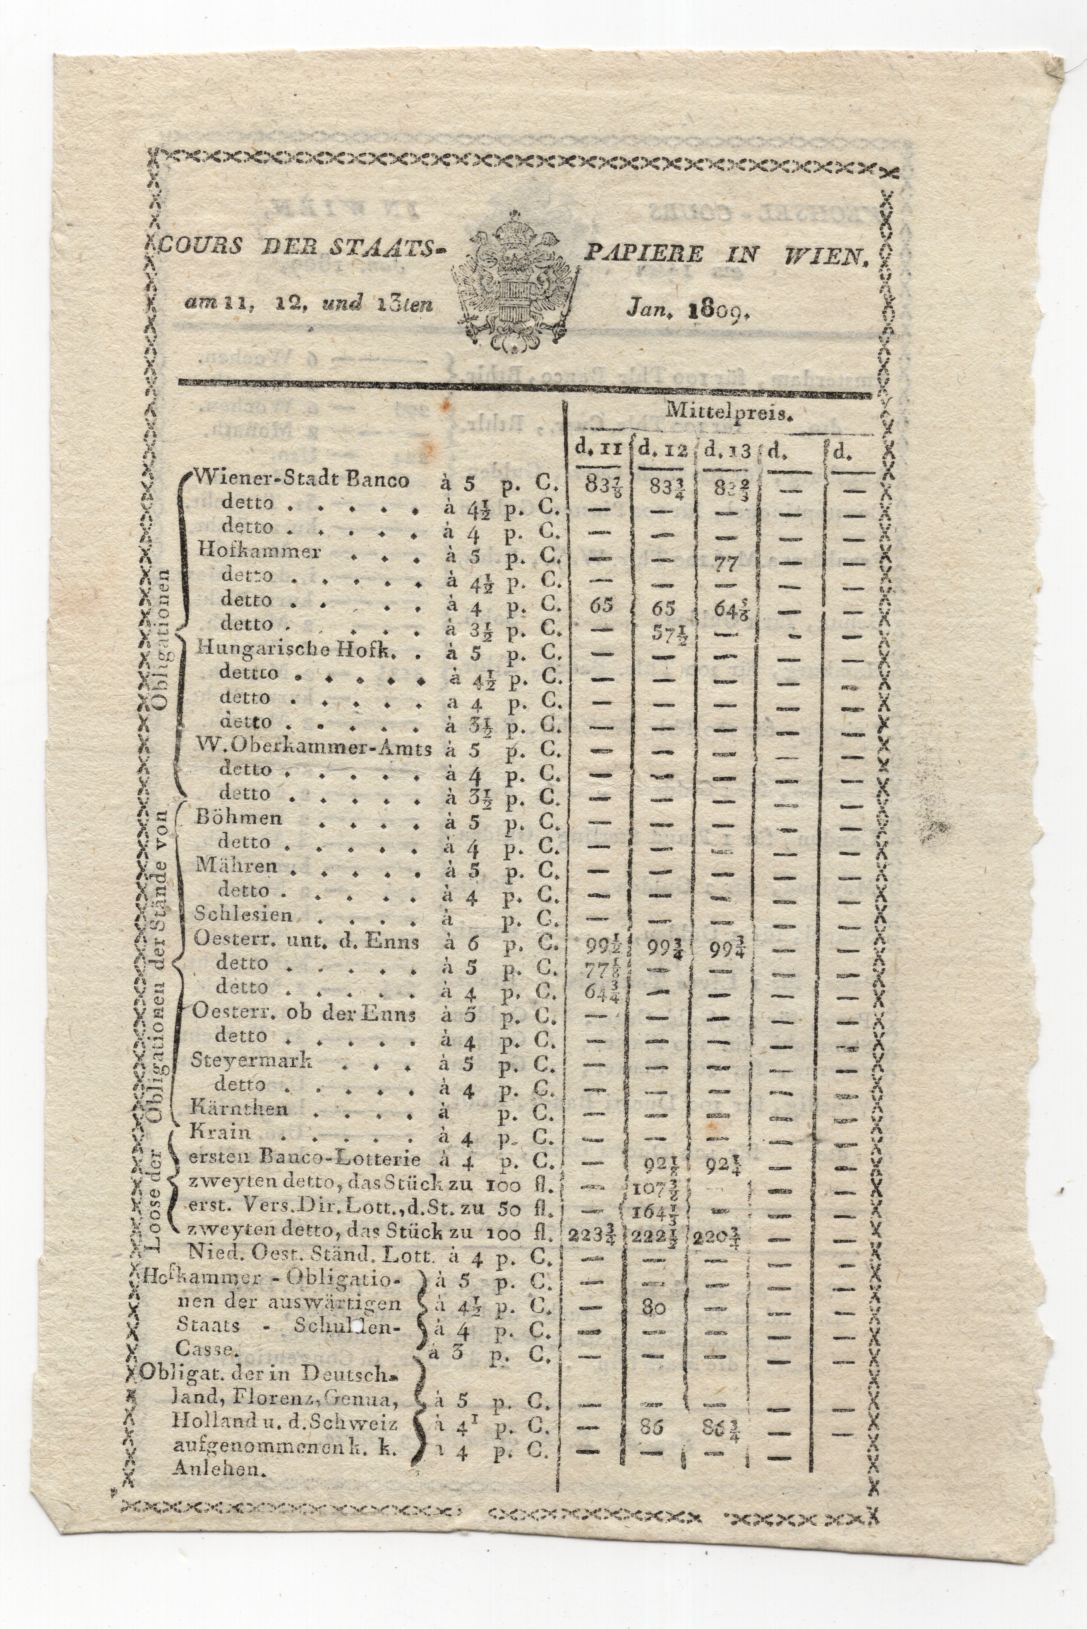 COURS DER STAATS- PAPIERE IN WIEN.
am 11, 12, und 13ten Jan. 1809.
Mittelpreis.
d. 11 d. 12 d. 13 d. d.
Obligationen
Wiener-Stadt Banco à 5 p. C. 83⅞ 83¾ 83⅔ — —
detto . . . . . à 4½ p. C. — — — — —
detto . . . . . à 4 p. C. — — — — —
Hofkammer . . . à 5 p. C. — — 77 — —
detto . . . . . à 4½ p. C. — — — — —
detto . . . . . à 4 p. C. 65 65 64⅝ — —
detto . . . . . à 3½ p. C. — 57½ — — —
Hungarische Hofk. . à 5 p. C. — — — — —
dettto . . . . . à 4½ p. C. — — — — —
detto . . . . . a 4 p. C. — — — — —
detto . . . . . à 3½ p. C. — — — — —
W. Oberkammer-Amts à 5 p. C. — — — — —
detto . . . . . à 4 p. C. — — — — —
detto . . . . . à 3½ p. C. — — — — —
Obligationen der Stände von
Böhmen . . . . à 5 p. C. — — — — —
detto . . . . . à 4 p. C. — — — — —
Mähren . . . . . à 5 p. C. — — — — —
detto . . . . . à 4 p. C. — — — — —
Schlesien . . . . à p. C. — — — — —
Oesterr. unt. d. Enns à 6 p. C. 99½ 99¾ 99¾ — —
detto . . . . . à 5 p. C. 77⅛ — — — —
detto . . . . . à 4 p. C. 64¾ — — — —
Oesterr. ob der Enns à 5 p. C. — — — — —
detto . . . . . à 4 p. C. — — — — —
Steyermark . . . à 5 p. C. — — — — —
detto . . . . . à 4 p. C. — — — — —
Kärnthen . . . . à p. C. — — — — —
Krain . . . . . à 4 p. C. — — — — —
Loose der
ersten Banco-Lotterie à 4 p. C. — 92⅛ 92¼ — —
zweyten detto, das Stück zu 100 fl. — — — —
erst. Vers. Dir. Lott., d. St. zu 50 fl. — — — —
zweyten detto, das Stück zu 100 fl. 223¾ 222½ 220¾ — —
Nied. Oest. Ständ. Lott. à 4 p. C. — — — — —
Hofkammer - Obligatio- à 5 p. C. — — — — —
nen der auswärtigen à 4½ p. C. — 80 — — —
Staats - Schulden- à 4 p. C. — — — — —
Casse. à 3 p. C. — — — — —
Obligat. der in Deutsch-
land, Florenz, Genua, à 5 p. C. — — — — —
Holland u. d. Schweiz à 4¹ p. C. — 86 86¾ — —
aufgenommenen k. k. à 4 p. C. — — — —
Anlehen.